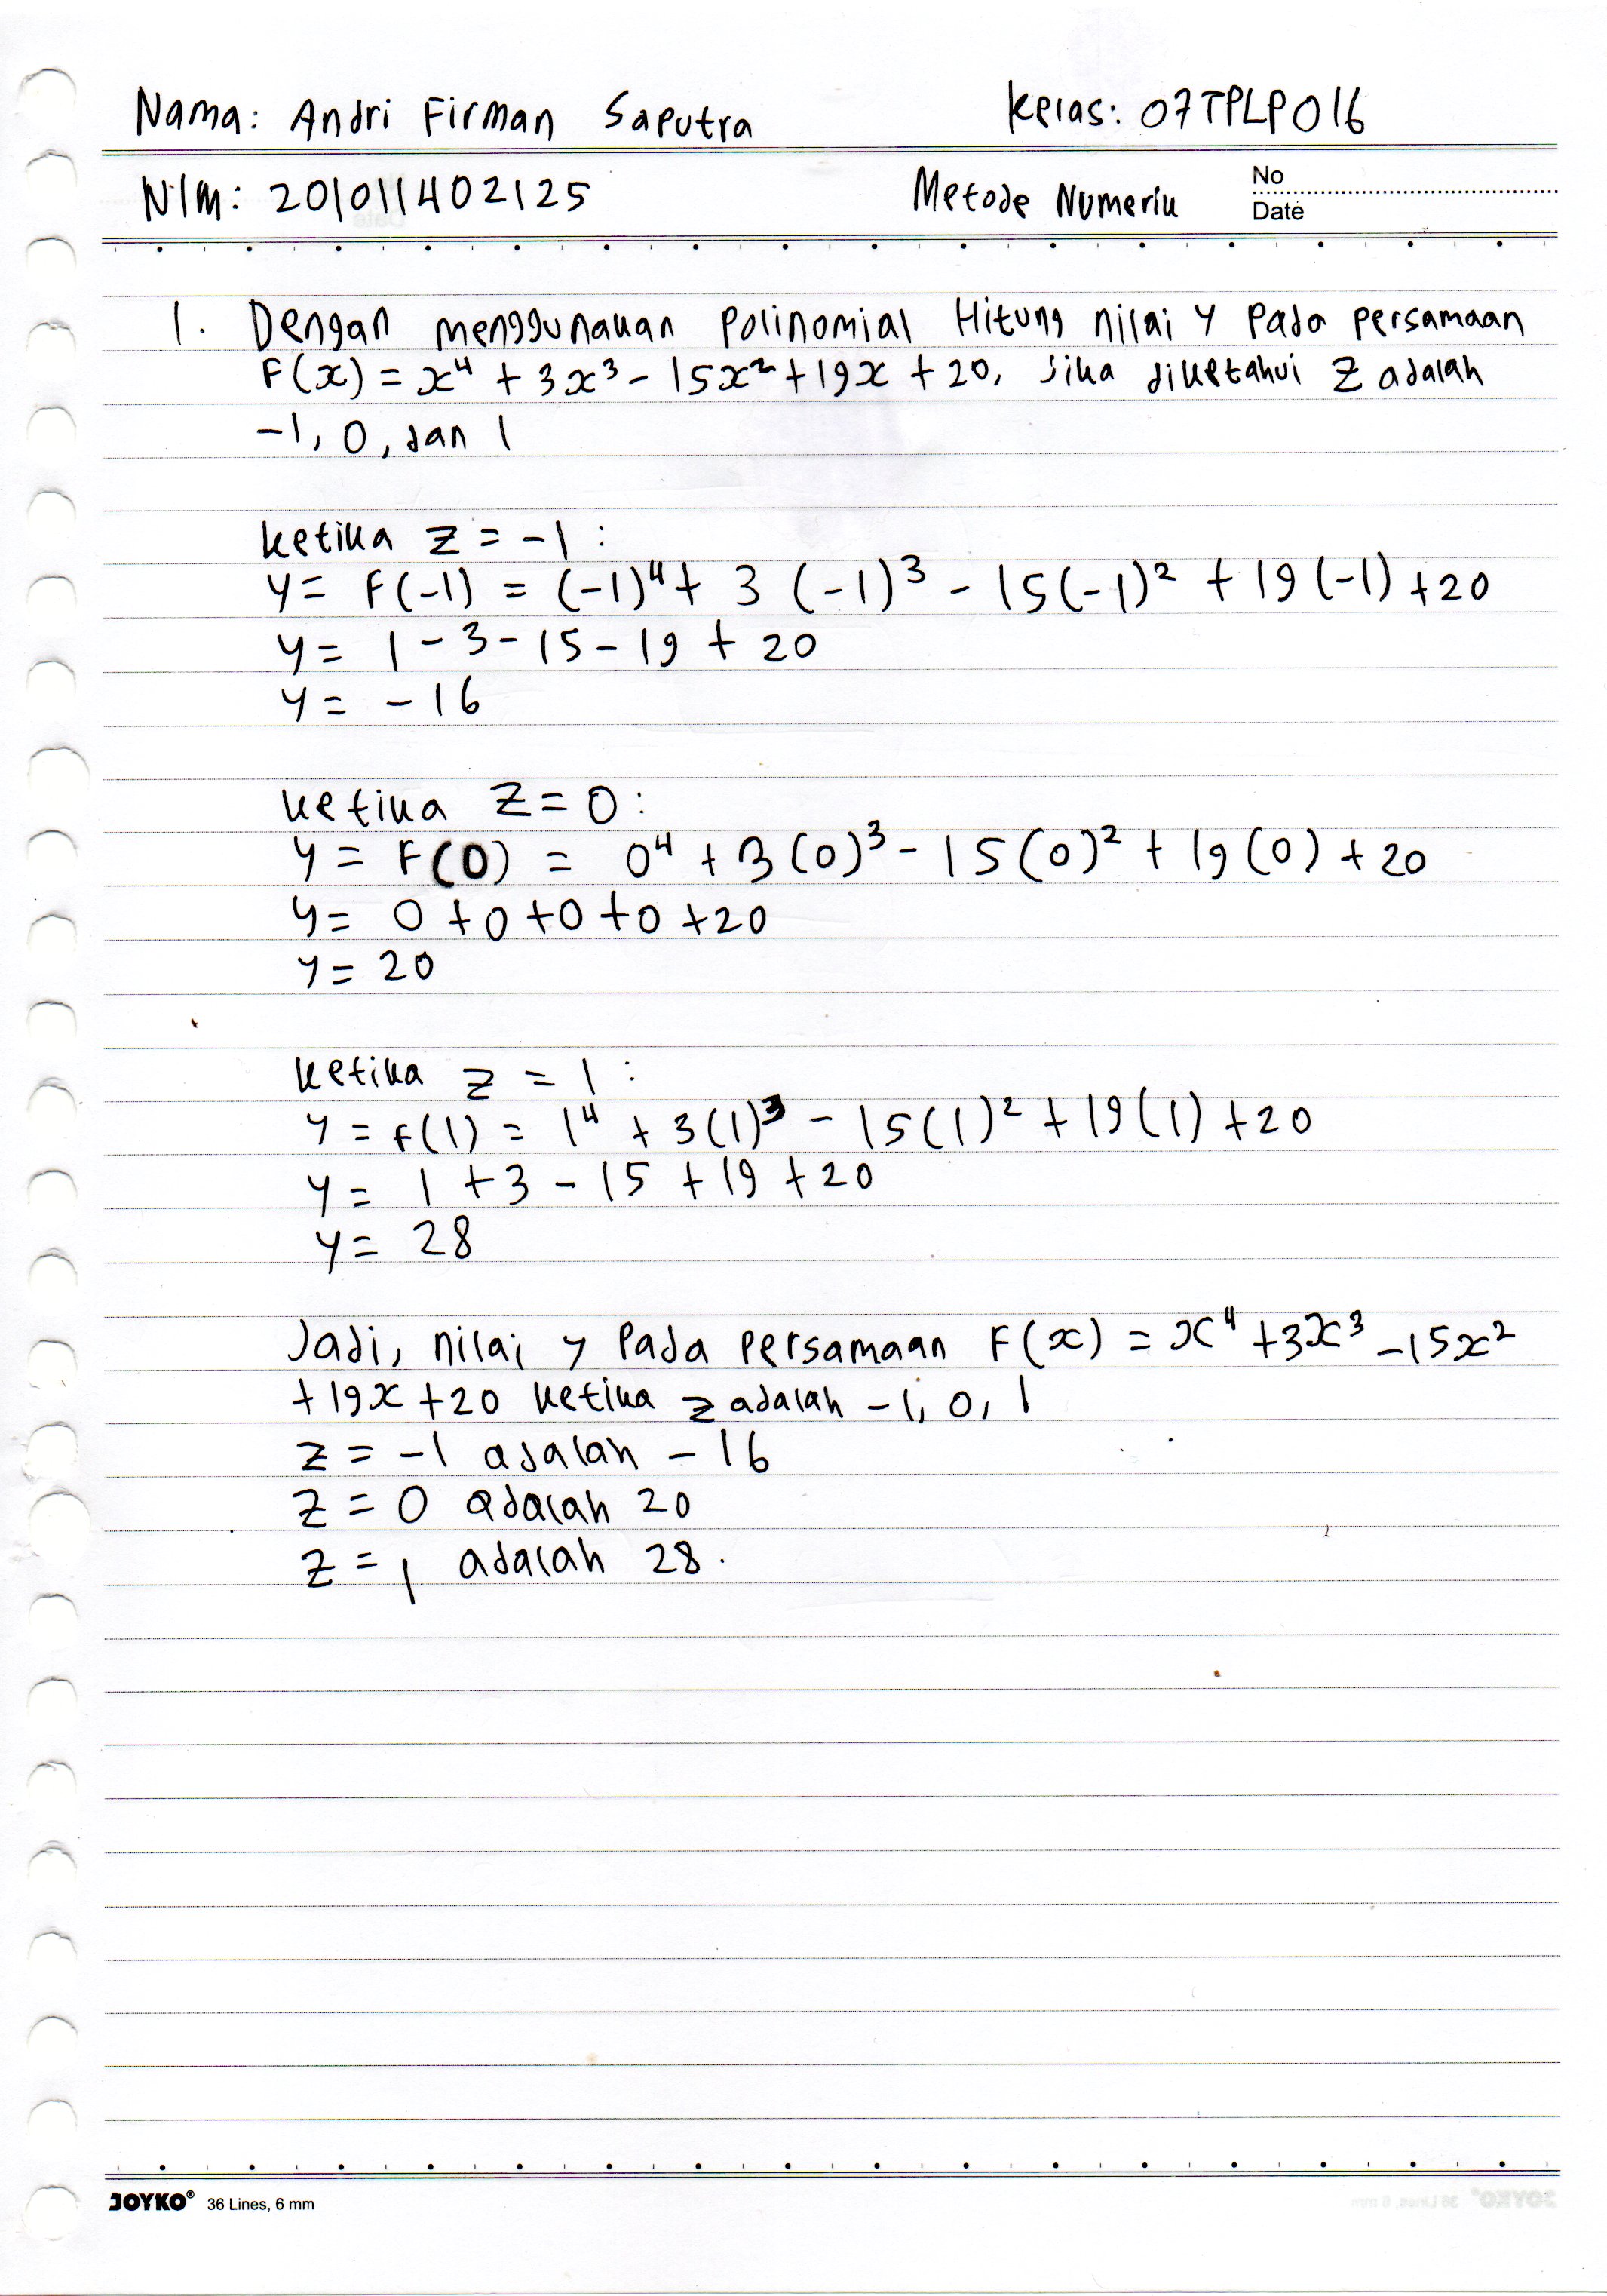 Nama: Andri Firman Saputra Kelas: 07TPLP016
NIM: 201011402125 Metode Numerik No
Date
1. Dengan menggunakan Polinomial Hitung nilai y Pada persamaan
F(x) = x⁴ + 3x³ - 15x² + 19x + 20, jika diketahui Z adalah
-1, 0, dan 1
Ketika z = -1 :
y = F(-1) = (-1)⁴ + 3 (-1)³ - 15(-1)² + 19(-1) + 20
y = 1 - 3 - 15 - 19 + 20
y = - 16
Ketika Z = 0 :
y = F(0) = 0⁴ + 3(0)³ - 15(0)² + 19(0) + 20
y = 0 + 0 + 0 + 0 + 20
y = 20
Ketika z = 1 :
y = f(1) = 1⁴ + 3(1)³ - 15(1)² + 19(1) + 20
y = 1 + 3 - 15 + 19 + 20
y = 28
Jadi, nilai y Pada persamaan F(x) = x⁴ + 3x³ - 15x²
+ 19x + 20 Ketika z adalah -1, 0, 1
z = -1 adalah - 16
z = 0 adalah 20
z = 1 adalah 28.
JOYKO® 36 Lines, 6 mm